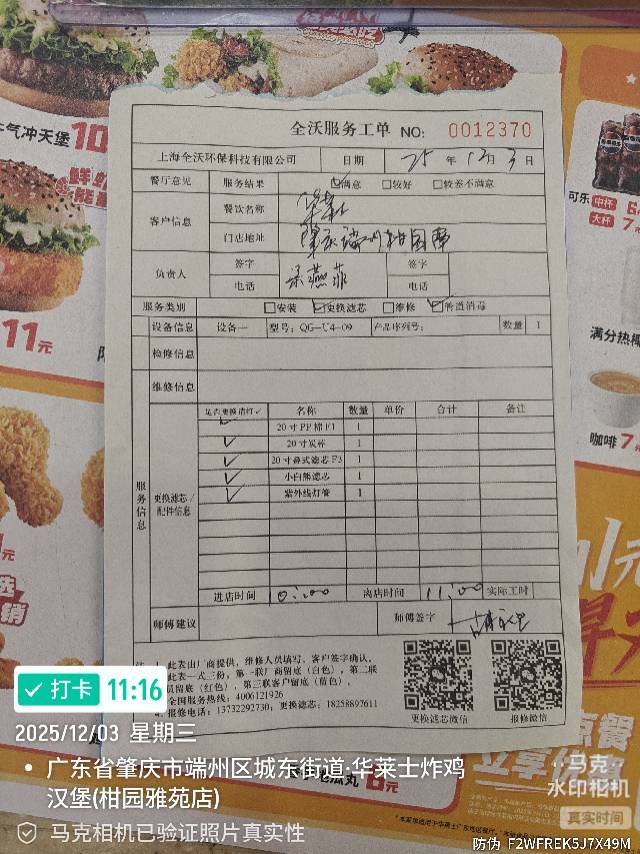 气冲天堡10
11元
可乐 中杯 6
大杯 7元
满分热椰
咖啡 7元
全沃服务工单 NO: 0012370
上海全沃环保科技有限公司 日期 25 年 12 月 3 日
餐厅意见 服务结果 ☑满意 □较好 □较差不满意
客户信息 餐饮名称 华莱士
门店地址 肇庆端州柑园
负责人 签字 梁燕菲 签字
电话 电话
服务类别 □安装 ☑更换滤芯 □维修 ☑管道消毒
设备信息 设备一 型号: QG-U4-09 产品序列号: 数量 1
检修信息
维修信息
服务信息
更换滤芯/配件信息
是否更换请打✓ 名称 数量 单价 合计 备注
✓ 20寸PP棉F1 1
✓ 20寸炭棒 1
✓ 20寸叠式滤芯F3 1
✓ 小白熊滤芯 1
✓ 紫外线灯管 1
进店时间 10:00 离店时间 11:00 实际工时
师傅建议 师傅签字
此表由厂商提供，维修人员填写，客户签字确认，
此表一式三份，第一联厂商留底（白色），第二联
员留底（红色），第三联客户留底（蓝色）。
全国服务热线: 4006121926
报修电话: 13732292730, 更换滤芯: 18258897611
更换滤芯微信 报修微信
打卡 11:16
2025/12/03 星期三
广东省肇庆市端州区城东街道·华莱士炸鸡
汉堡(柑园雅苑店)
马克相机已验证照片真实性
马克
水印相机
真实时间
防伪 F2WFREK5J7X49M